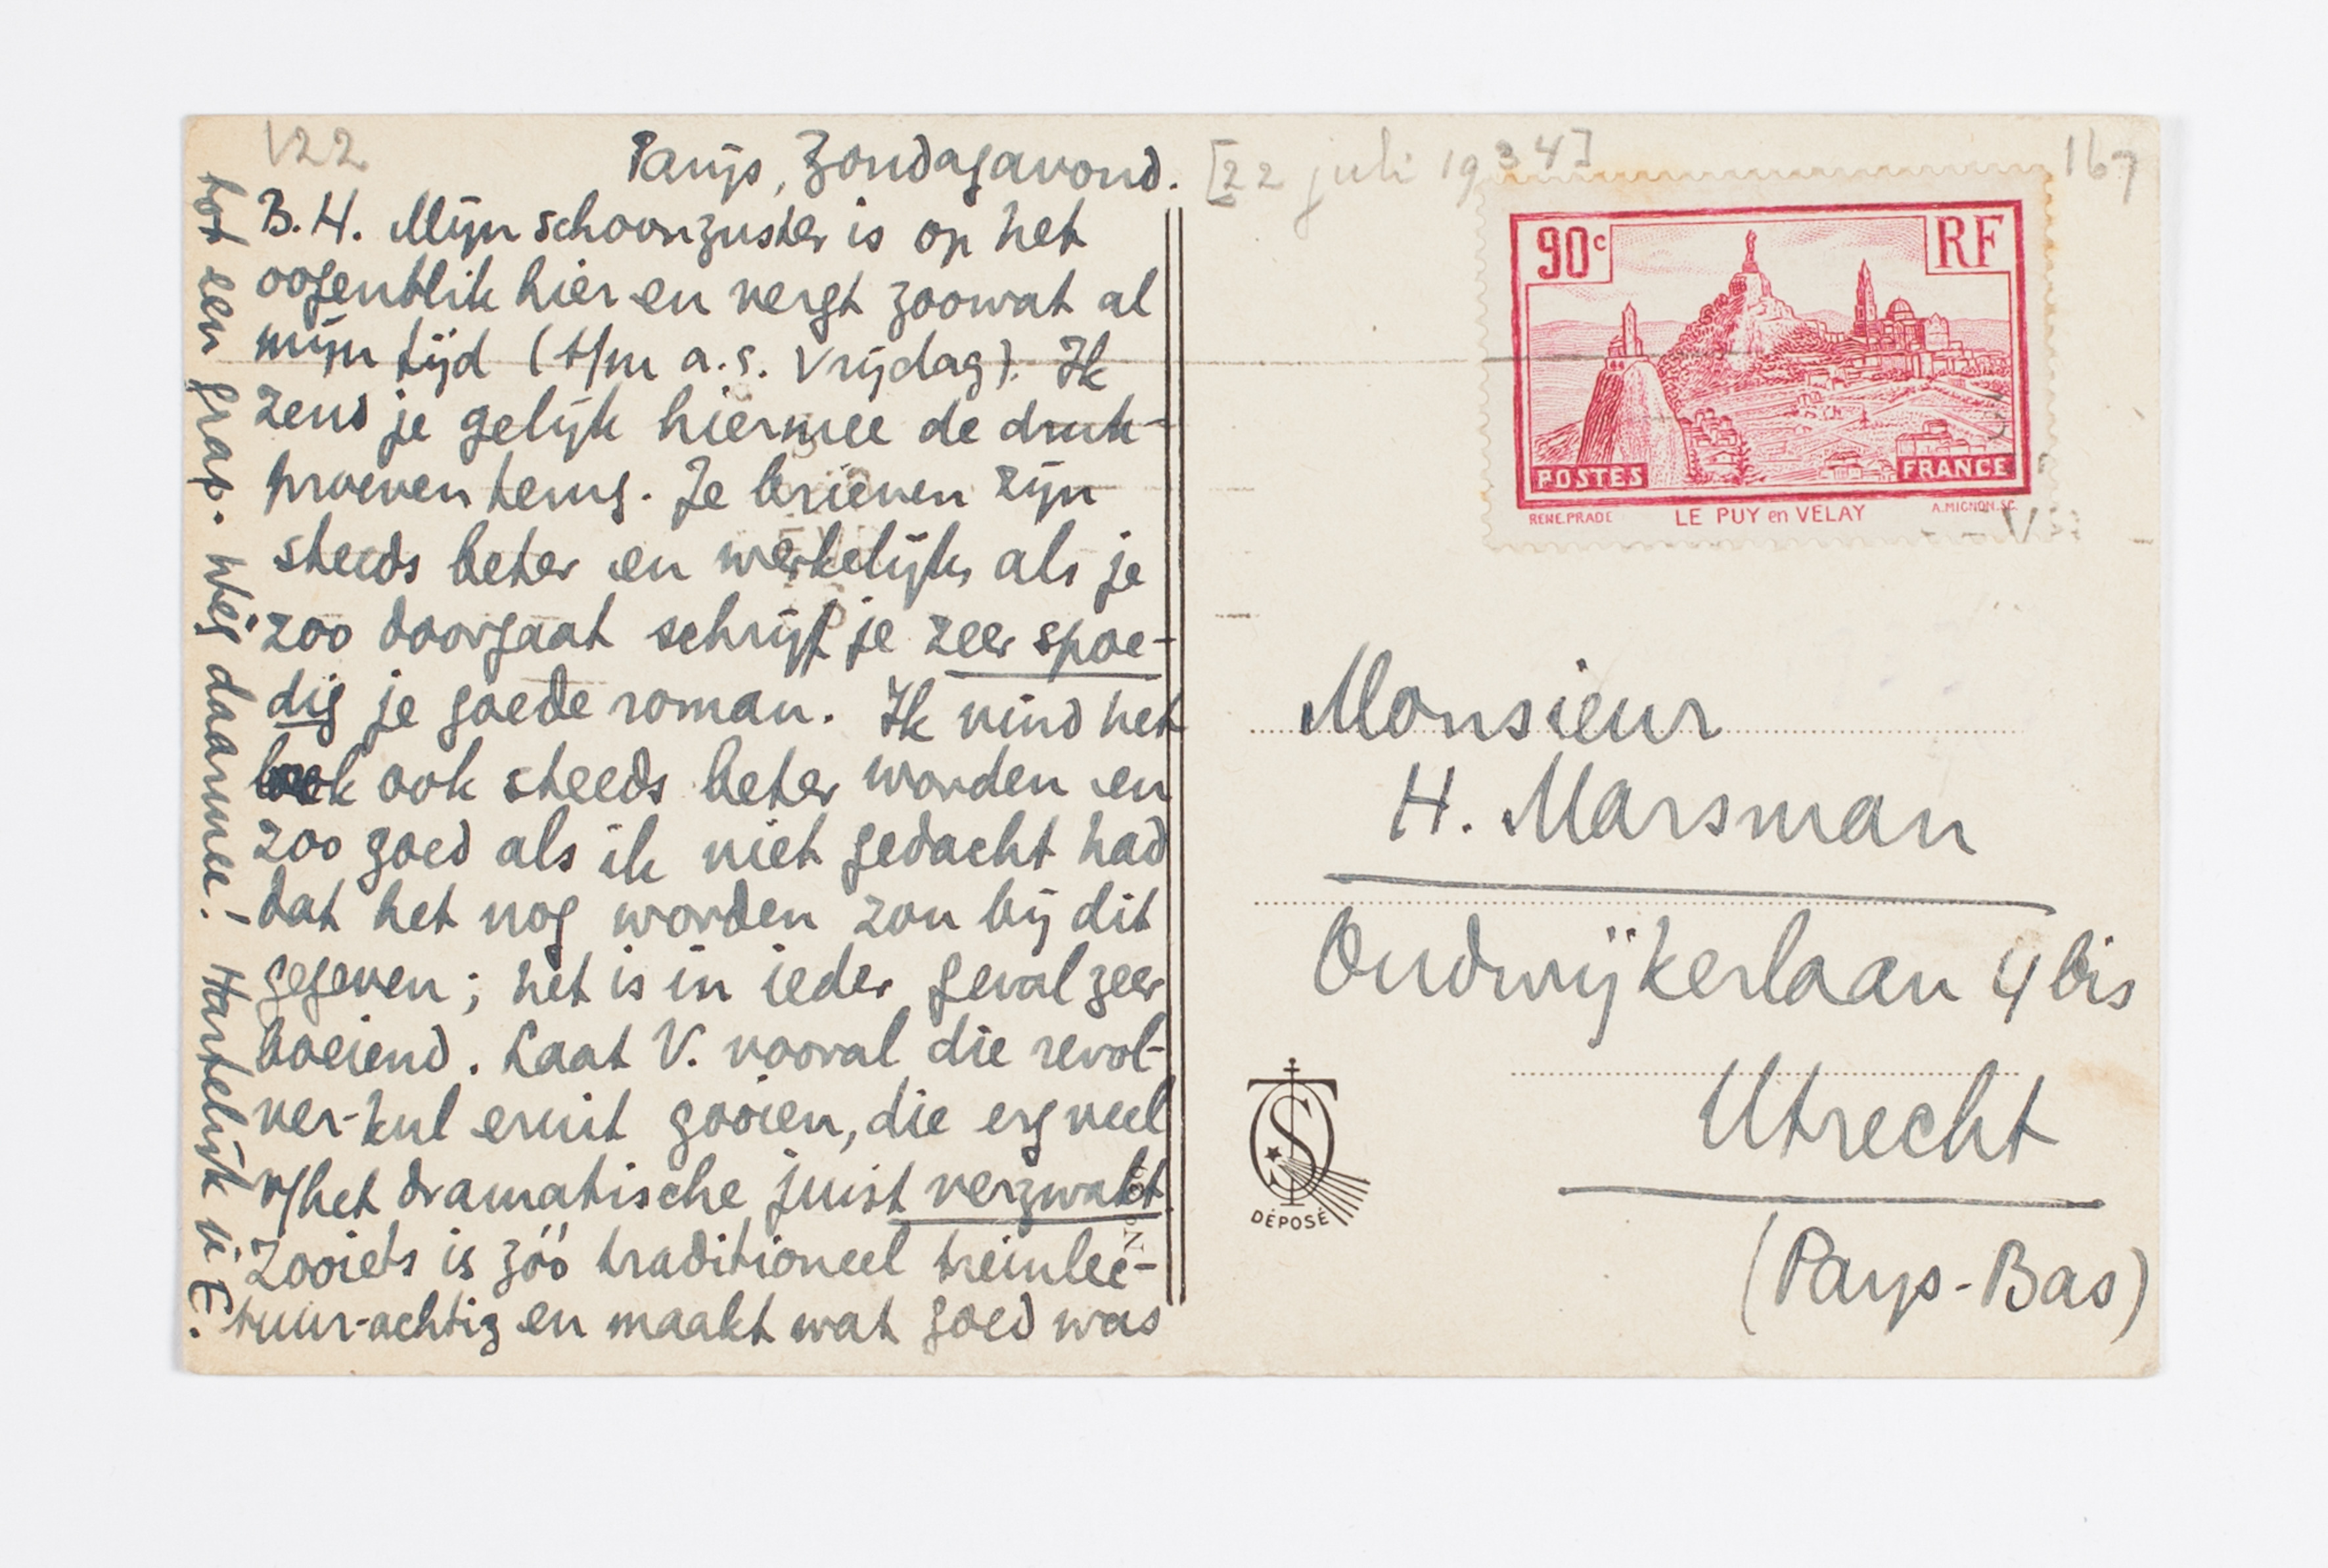 V22
Parijs, Zondagavond.
[22 juli 1934]
167
B.H. Mijn schoonzuster is op het
oogenblik hier en vergt zoowat al
mijn tijd (t/m a.s. Vrijdag). Ik
zend je gelijk hiermee de druk-
proeven terug. Je brieven zijn
steeds beter en werkelijk, als je
zoo doorgaat schrijf je zeer spoe-
dig je goede roman. Ik vind het
boek ook steeds beter worden en
zoo goed als ik niet gedacht had
dat het nog worden zou bij dit
gegeven; het is in ieder geval zeer
boeiend. Laat V. vooral die revol-
ver-kul eruit gooien, die erg veel
v/het dramatische juist verzwakt.
Zooiets is zóó traditioneel treinlec-
tuur-achtig en maakt wat goed was
tot een grap. Weg daarmee! Hartelijk je E.
90c
RF
POSTES
FRANCE
RENE.PRADE
LE PUY en VELAY
A.MIGNON.SC.
Monsieur
H. Marsman
Oudwijkerlaan 4 bis
Utrecht
(Pays-Bas)
DÉPOSÉ